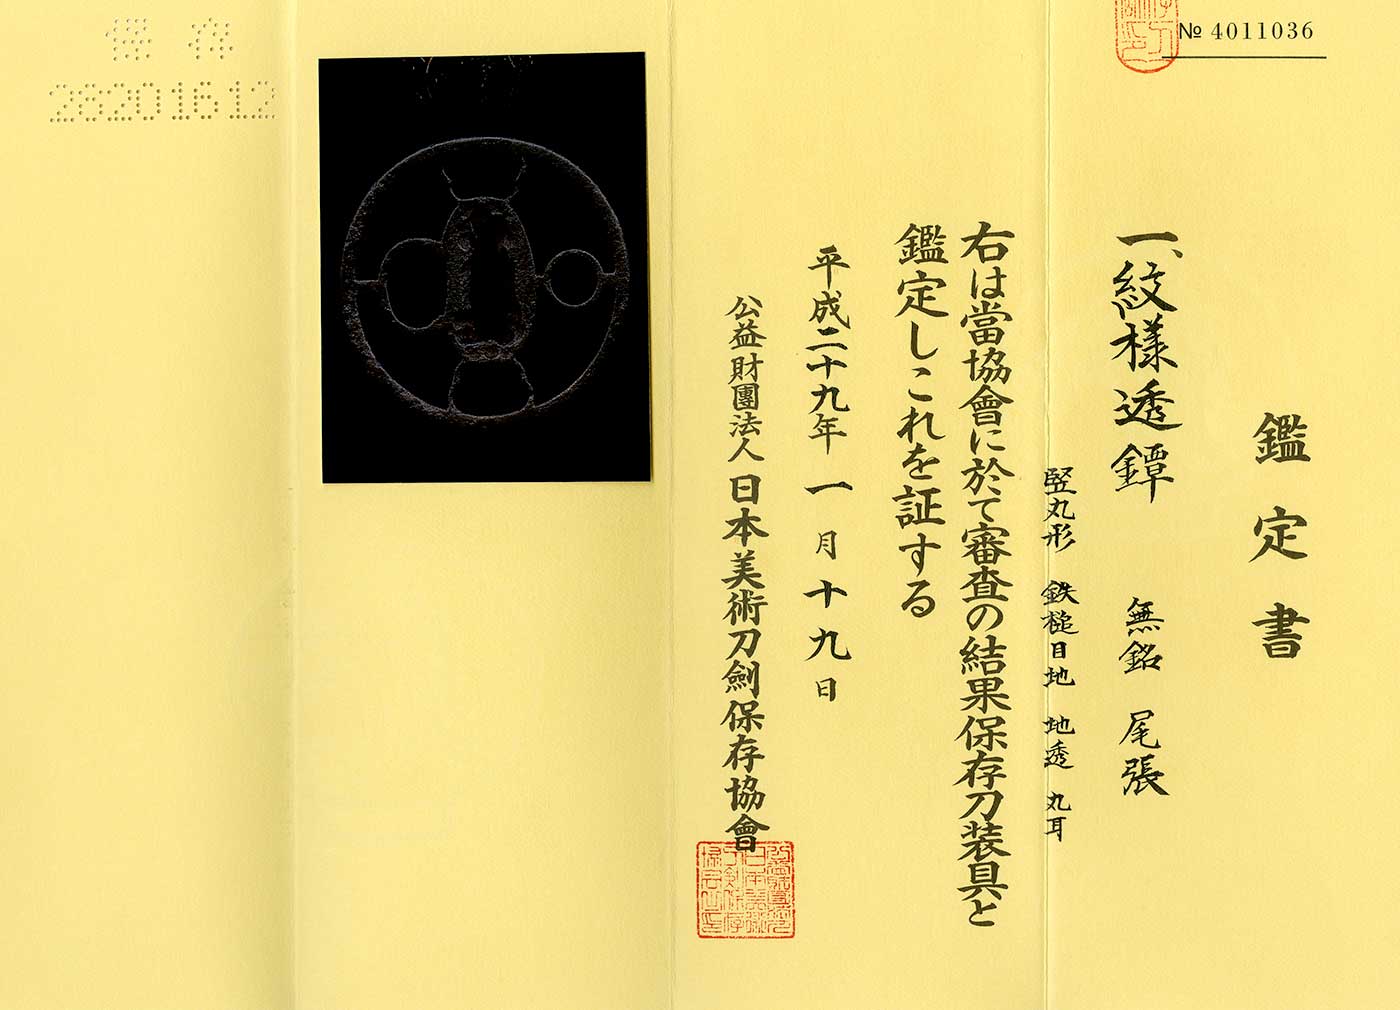 № 4011036
鑑定書
一、紋様透鐔 無銘 尾張
竪丸形 鉄槌目地 地透 丸耳
右は當協會に於て審査の結果保存刀装具と
鑑定しこれを証する
平成二十九年一月十九日
公益財團法人 日本美術刀劍保存協會
保存
28201612